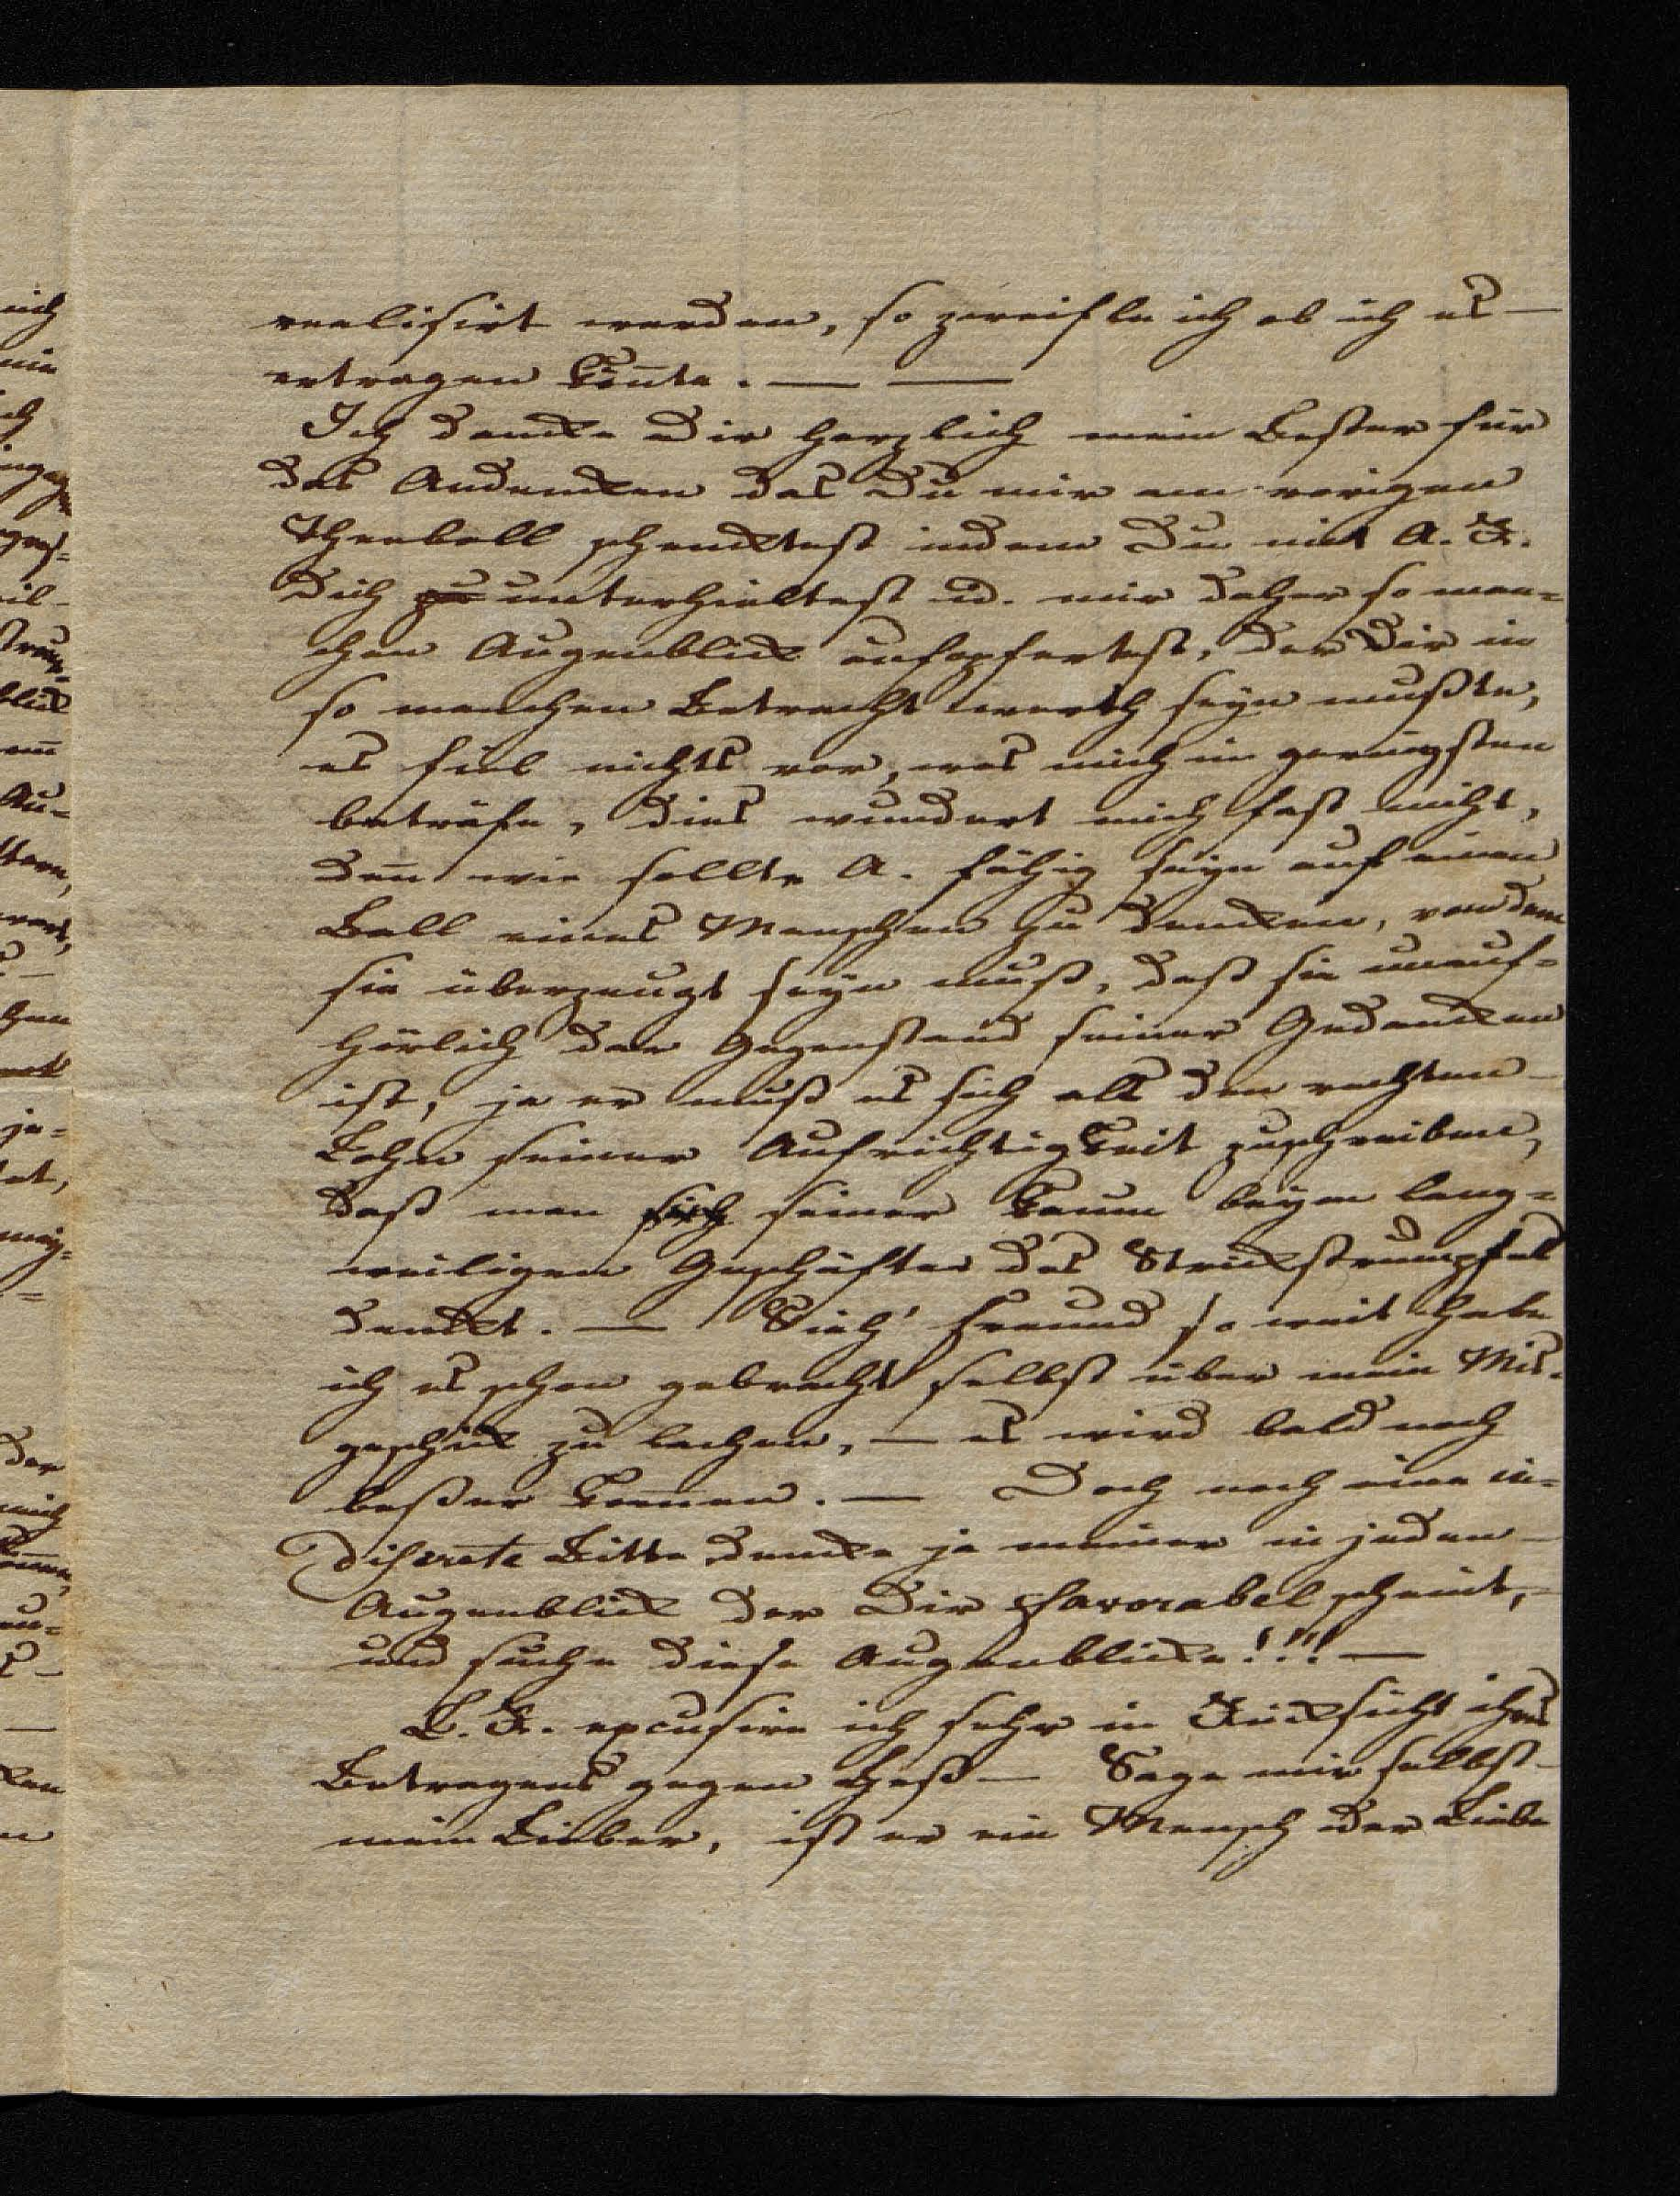 realisirt werden, so zweifle ich ob ich es —
ertragen kön̄te. — —
Ich dancke Dir herzlich mein Bester für
das Andencken das Du mir am vorigen
Theeball schencktest indem Du mit A. R.
Dich zu unterhieltest u. mir daher so man=
chen Augenblick aufopfertest, der Dir in
so manchen Betracht werth seyn mußte,
es fiel nichts vor, was mich im geringsten
beträfe, dies wundert mich fast nicht,
den̄ wie sollte A. fähig seyn auf einen
Ball eines Menschen zu dencken, von dem
sie überzeugt seyn muß, daß sie unauf=
hörlich der Gegenstand seiner Gedancken
ist, ja er muß es sich als den rechten —
Lohn seiner Aufrichtigkeit zuschreiben,
daß man sich seiner kaum beym lang=
weiligen Geschäfte des Strickstrumpfes
denckt. — Sieh' Freund so weit habe
ich es schon gebracht selbst über mein Mis=
geschick zu lachen, — es wird bald noch
beßer kommen. — Doch noch eine in=
discrete Bitte dencke ja meiner in jeden —
Augenblick der Dir favorabel scheint, —
und suche diese Augenblicke!!! —
L. R. excusire ich sehr in Rücksicht ihres
Betragens gegen Heß — Sage mir selbst —
mein Lieber, ist er ein Mensch der Liebe